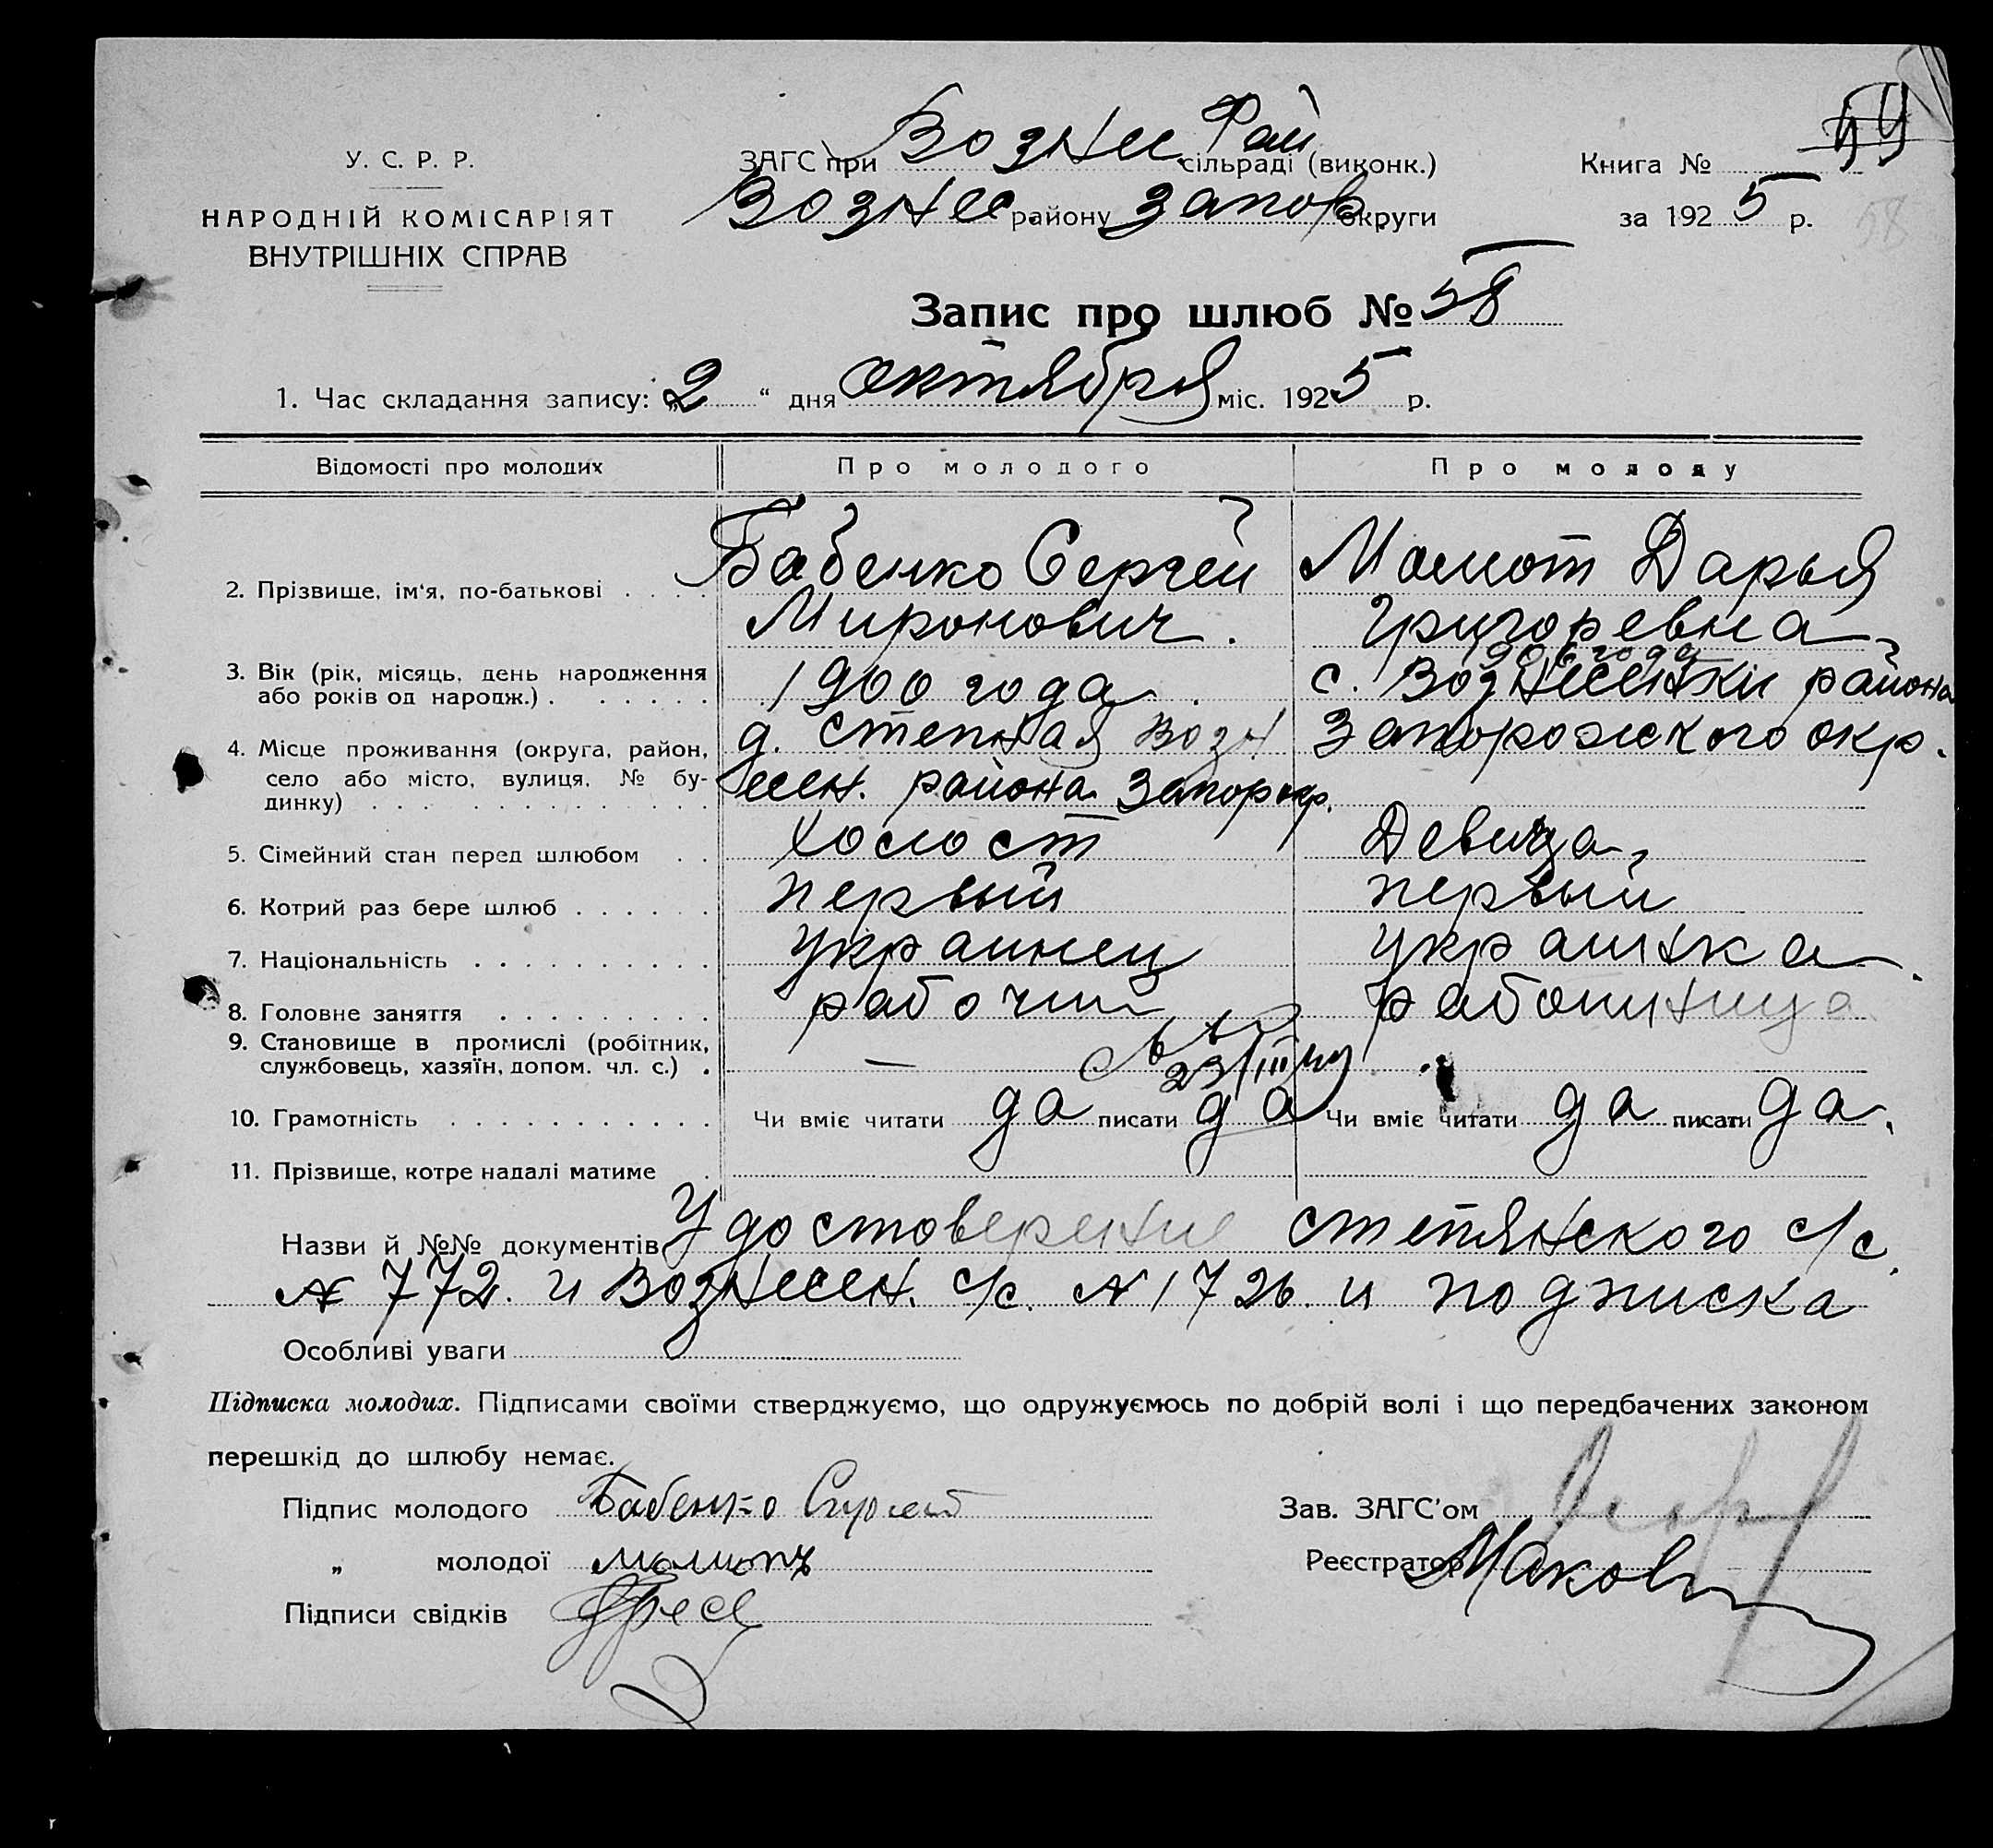 У. С. Р. Р.
НАРОДНІЙ КОМІСАРІЯТ
ВНУТРІШНІХ СПРАВ
ЗАГС при Вознес Рай сільраді (виконк.)
Вознес району Запор округи
Книга № 59
за 1925 р.
58
Запис про шлюб № 58
1. Час складання запису: „2“ дня октября міс. 1925 р.
Відомості про молодих Про молодого Про молоду
2. Прізвище, ім'я, по-батькові . . . . Бабенко Сергей Момот Дарья
Миронович. Григоревна
3. Вік (рік, місяць, день народження 906 года
або років од народж.) . . . . . . 1900 года. с. Вознесенки района
4. Місце проживання (округа, район, д. Степная Возн Запорожского окр.
село або місто, вулиця, № бу-
динку) . . . . . . . . . . . . . . есен. района Запор окр.
5. Сімейний стан перед шлюбом . . холост Девица
6. Котрий раз бере шлюб . . . . . . первый первый
7. Національність . . . . . . . . . . украинец украинка
8. Головне заняття . . . . . . . . . рабочий работница
9. Становище в промислі (робітник,
службовець, хазяїн, допом. чл. с.) . — 23/III
10. Грамотність . . . . . . . . . . . Чи вміє читати да писати да Чи вміє читати да писати да.
11. Прізвище, котре надалі матиме .
Назви й №№ документів Удостоверение степянского с/с.
№ 772. и Вознесен. с/с. № 1726. и подписка
Особливі уваги
Підписка молодих. Підписами своїми стверджуємо, що одружуємось по добрій волі і що передбачених законом
перешкід до шлюбу немає.
Підпис молодого Бабенко Сергей
Зав. ЗАГС'ом
„ молодої Момотъ
Реєстратор Маков
Підписи свідків